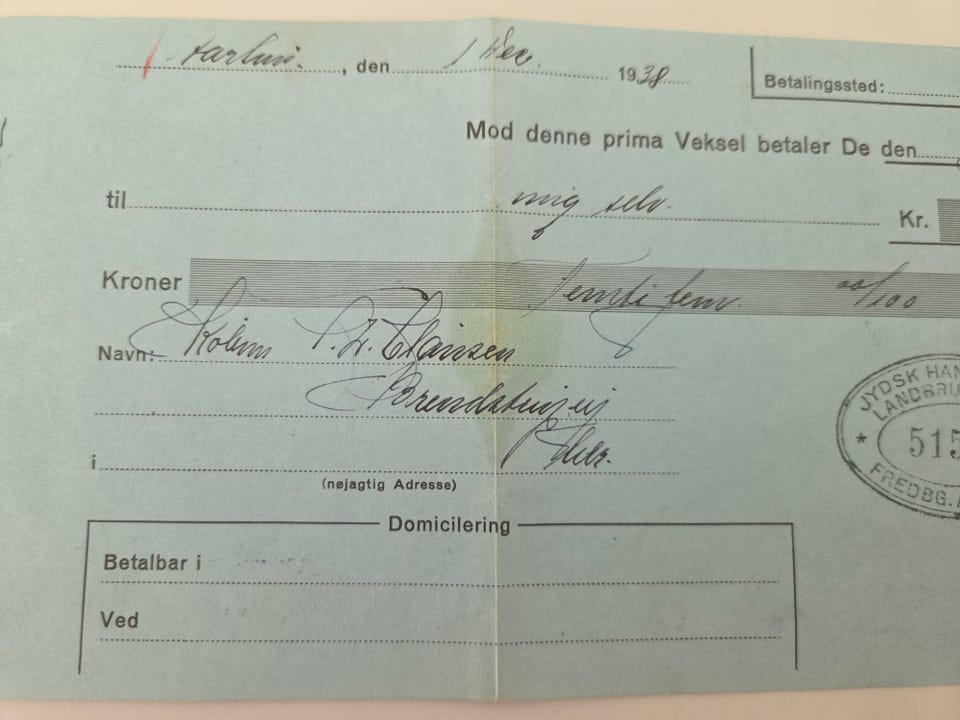 Aarhus. , den 1 Dec. 1938
Betalingssted:
Mod denne prima Veksel betaler De den
til mig selv.
Kr.
Kroner Femti fem. 00/100
Navn: P. Z. Clausen
i
(nøjagtig Adresse)
Domicilering
Betalbar i
Ved
JYDSK HAN
LANDBRU
515
FREDBG.